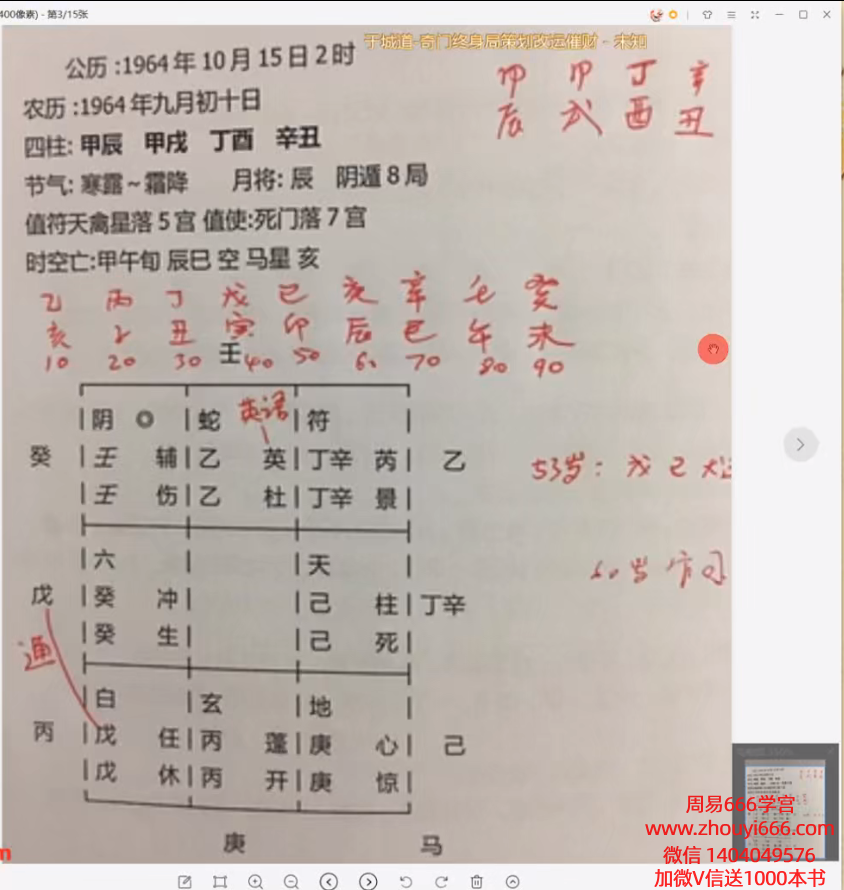 400像素) - 第3/15张
于城道-奇门终身局策划改运催财 - 未知
公历 :1964 年 10 月 15 日 2 时
甲 甲 丁 辛
辰 戌 酉 丑
农历 :1964 年九月初十日
四柱: 甲辰 甲戌 丁酉 辛丑
节气: 寒露~霜降 月将: 辰 阴遁 8 局
值符天禽星落 5 宫 值使:死门落 7 宫
时空亡:甲午旬 辰巳 空 马星 亥
乙 丙 丁 戊 己 辛 壬 癸
亥 子 丑 寅 卯 辰 巳 午 未
10 20 30 40 50 60 70 80 90
壬
阴 ◎ 蛇 英语 符
癸 壬 辅 乙 英 丁辛 芮 乙
壬 伤 乙 杜 丁辛 景
53岁: 戊 己
六 天
60岁
戊 癸 冲 己 柱 丁辛
癸 生 己 死
通
白 玄 地
丙 戊 任 丙 蓬 庚 心 己
戊 休 丙 开 庚 惊
庚 马
周易666学宫
www.zhouyi666.com
微信 1404049576
加微V信送1000本书